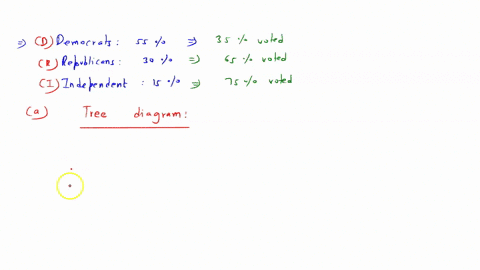 ⇒ (D) Democrats : 55 % ⇒ 35 % voted
(R) Republicans : 30 % ⇒ 65 % voted
(I) Independent : 15 % ⇒ 75 % voted
(a) Tree diagram :